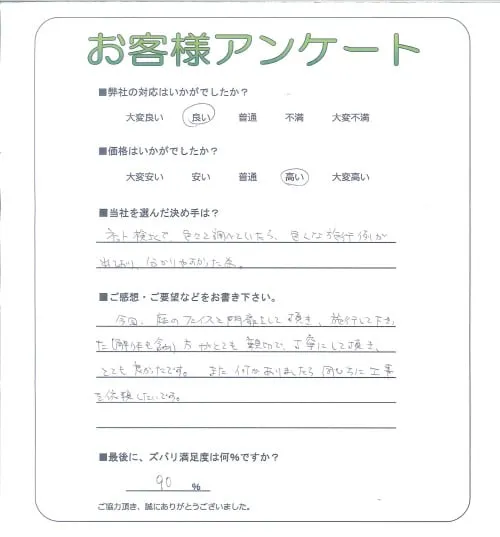 お客様アンケート
■弊社の対応はいかがでしたか?
大変良い 良い 普通 不満 大変不満
■価格はいかがでしたか?
大変安い 安い 普通 高い 大変高い
■当社を選んだ決め手は?
ネット検索で、色々と調べていたら、色々な施行例が
出ており、分かりやすかった為。
■ご感想・ご要望などをお書き下さい。
今回、庭のフェイスと門扉をして頂き、施行して下さ
た(解体も含め)方がとても親切で、丁寧にして頂き、
とても良かったです。また何かありましたら同じように工事
を依頼したいです。
■最後に、ズバリ満足度は何%ですか?
90 %
ご協力頂き、誠にありがとうございました。